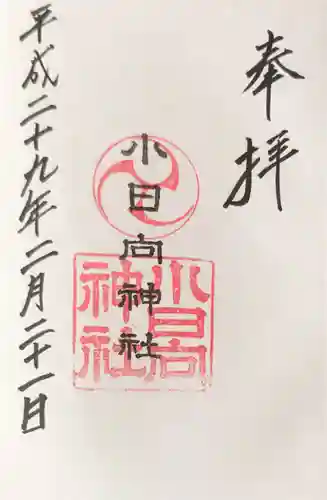 奉拝
小日向神社
小日向
神社
平成二十九年二月二十一日